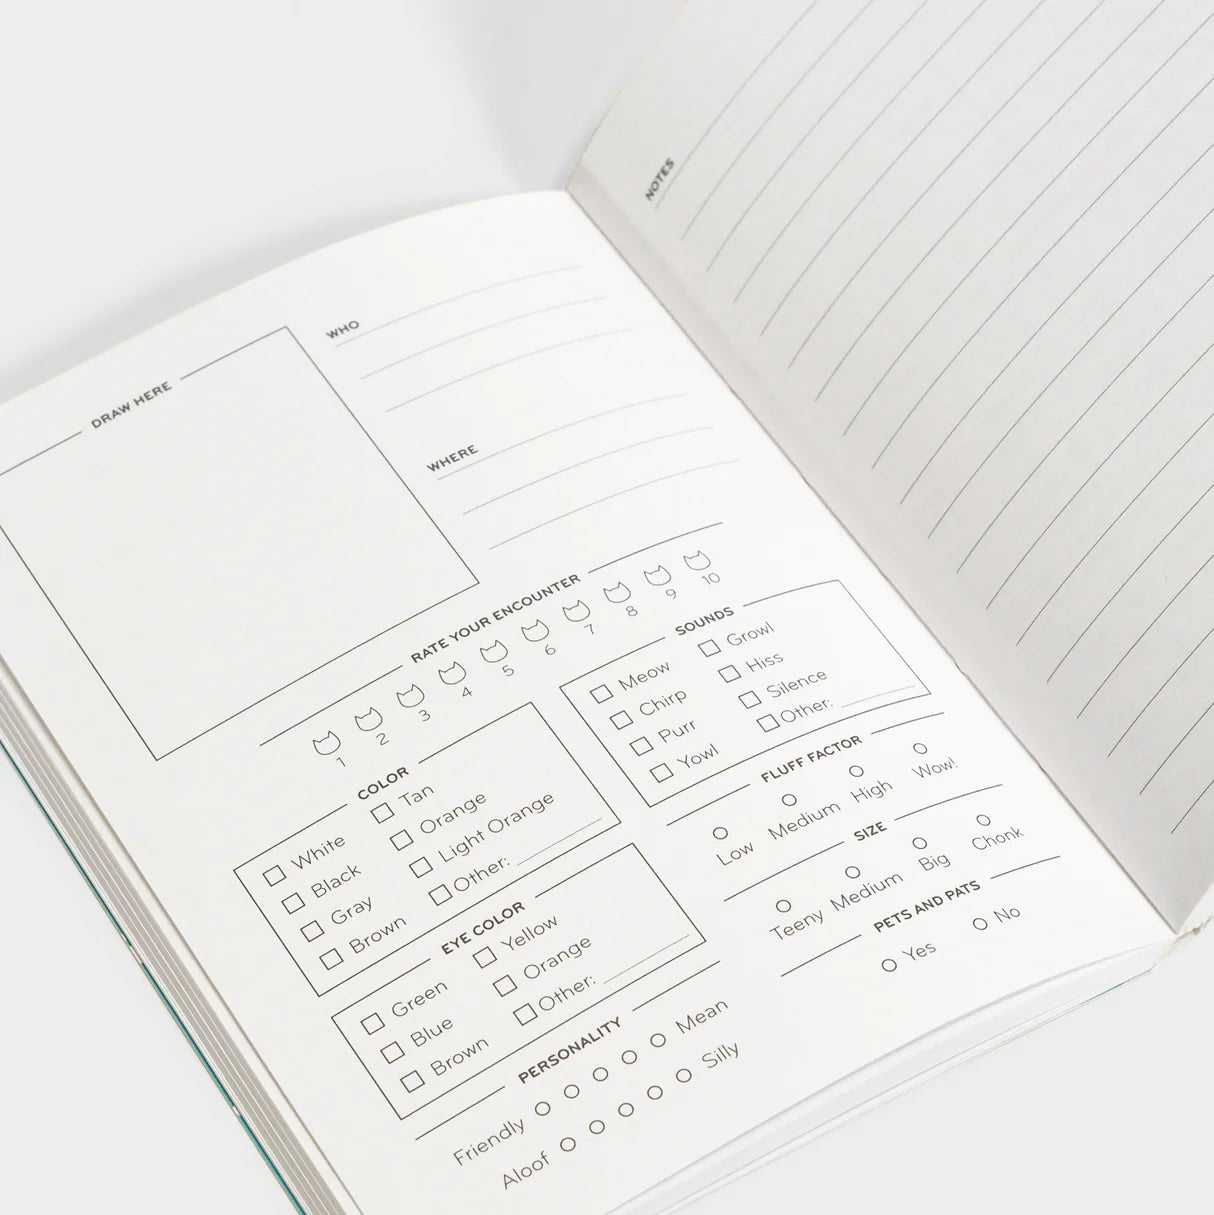 DRAW HERE
WHO
WHERE
RATE YOUR ENCOUNTER
1 2 3 4 5 6 7 8 9 10
COLOR
White
Black
Gray
Brown
Tan
Orange
Light Orange
Other:
EYE COLOR
Green
Blue
Brown
Yellow
Orange
Other:
PERSONALITY
Friendly Mean
Aloof Silly
SOUNDS
Meow
Chirp
Purr
Yowl
Growl
Hiss
Silence
Other:
FLUFF FACTOR
Low Medium High Wow!
SIZE
Teeny Medium Big Chonk
PETS AND PATS
Yes No
NOTES